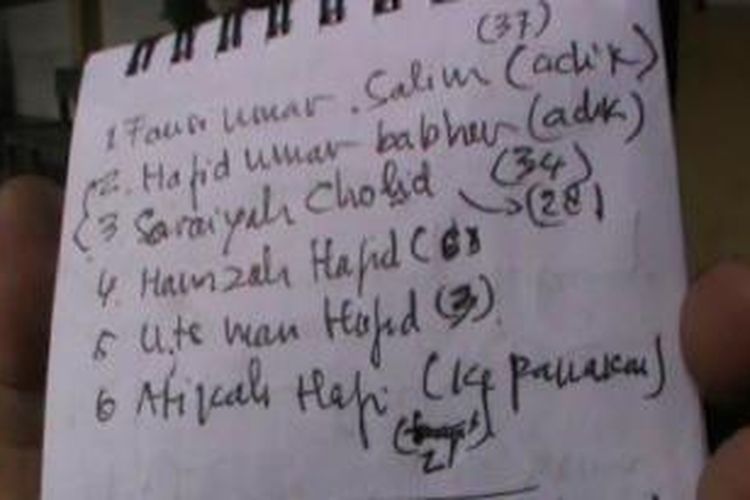 (37)
1 Fausi umar . Salim (adik)
2. Hafid umar babher (adik)
3 Saraiyah Cholid (34)
(28)
4. Hamzah Hafid (
5 Utsman Hafid (3)
6 Atikah Hafi (
21